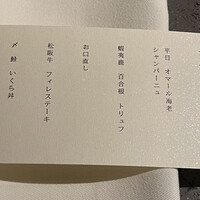 平目 オマール海老
シャンパーニュ
蝦夷鹿 百合根 トリュフ
お口直し
松阪牛 フィレステーキ
〆 鮭 いくら丼